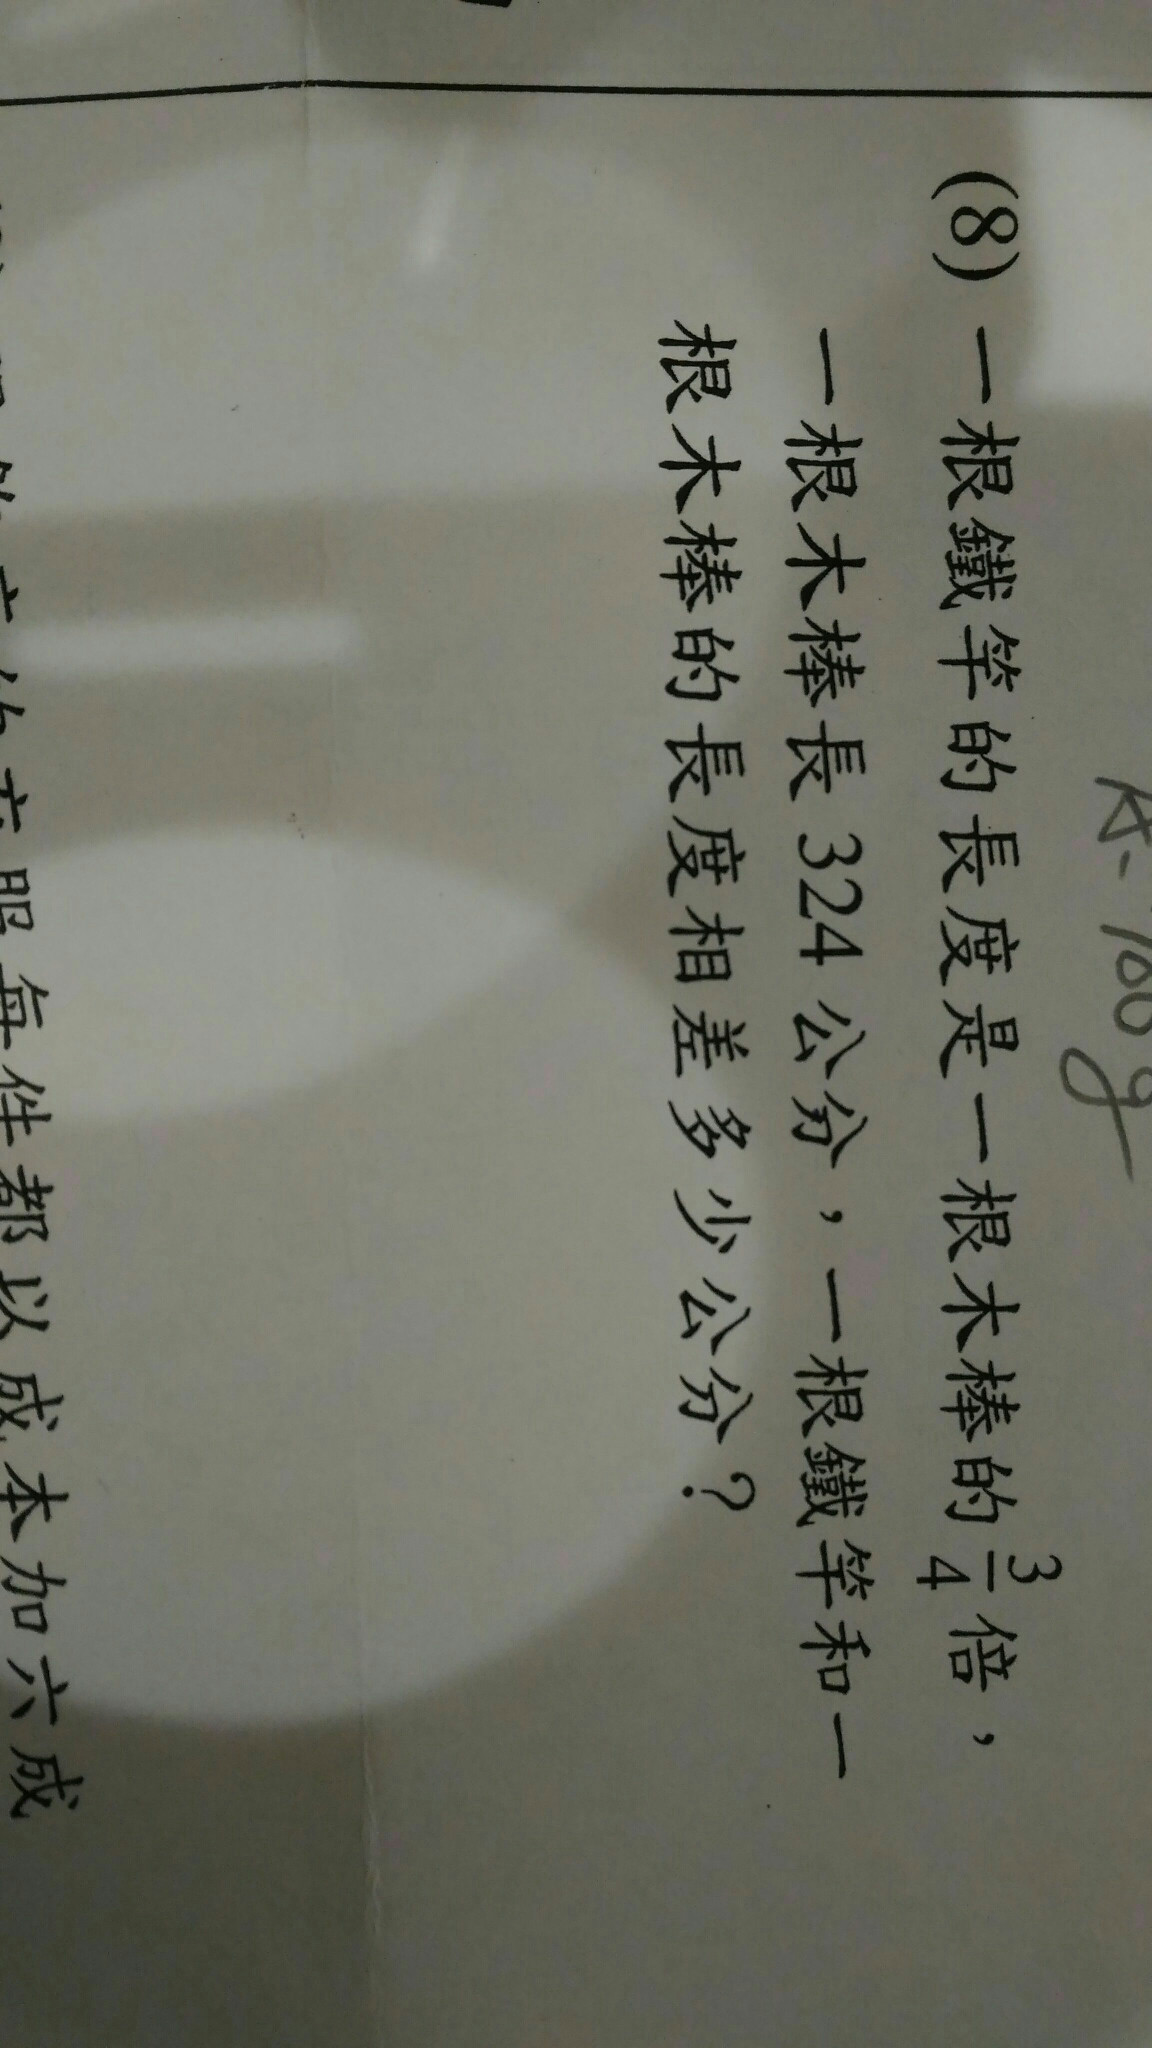 女 100g
(8) 一根鐵竿的長度是一根木棒的 3/4 倍，
一根木棒長 324 公分，一根鐵竿和一
根木棒的長度相差多少公分？
每件都以成本加六成